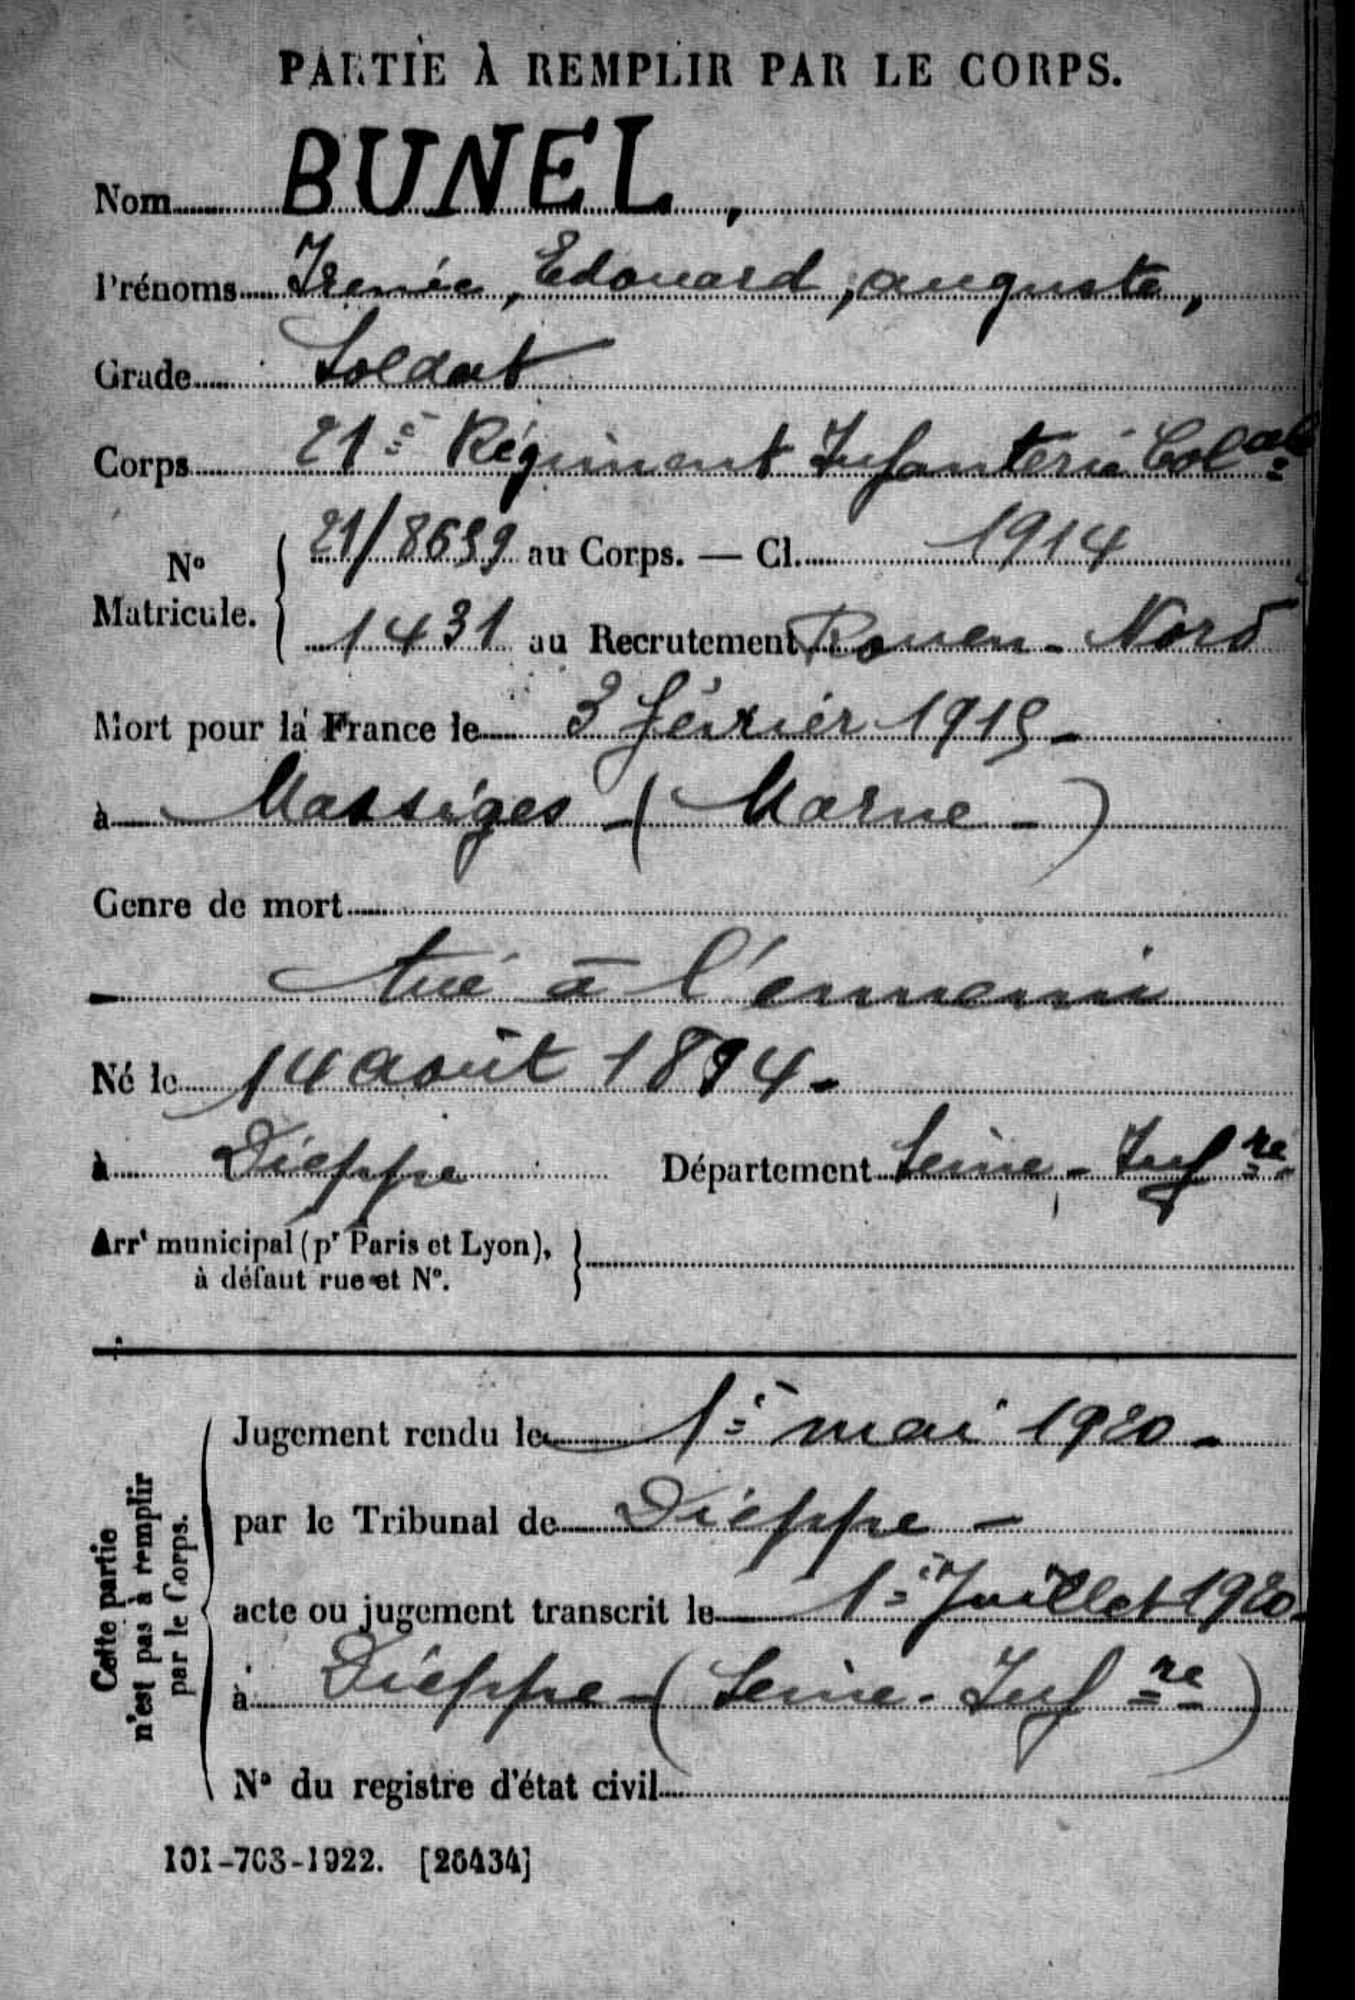 PARTIE À REMPLIR PAR LE CORPS.
Nom BUNEL,
Prénoms Irénée, Edouard, auguste,
Grade Soldat
Corps 21e Régiment Infanterie Colale
No Matricule. { 21/8659 au Corps. — Cl. 1914
1431 au Recrutement Rouen - Nord
Mort pour la France le 3 février 1915 -
à Massiges - (Marne -)
Genre de mort
tué à l'ennemi
Né le 14 août 1894 -
à Dieppe Département Seine - Infre
Arrt municipal (pr Paris et Lyon), à défaut rue et No. }
Cette partie n'est pas à remplir par le Corps.
Jugement rendu le 1e mai 1920 -
par le Tribunal de Dieppe -
acte ou jugement transcrit le 1e Juillet 1920 -
à Dieppe - (Seine - Infre)
No du registre d'état civil
101-703-1922. [26434]